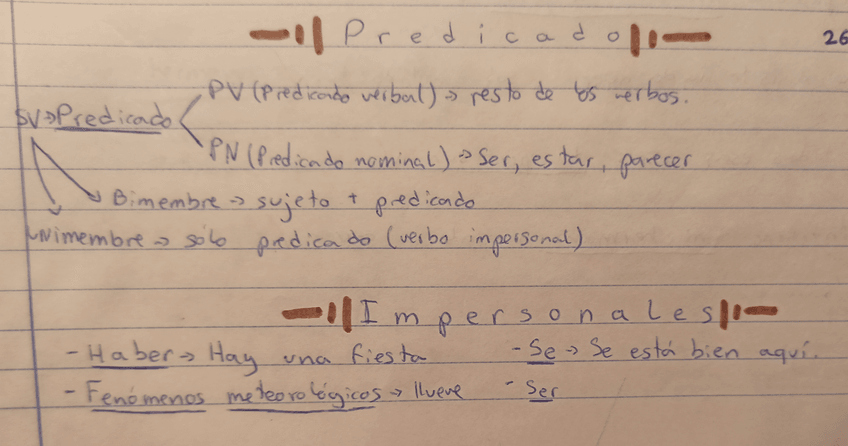 Predicado
26
PV (Predicado verbal) → resto de los verbos.
SV → Predicado
PN (Predicado nominal) → Ser, estar, parecer
Bimembre → sujeto + predicado
Unimembre → sólo predicado (verbo impersonal)
Impersonales
- Haber → Hay una fiesta - Se → Se está bien aquí.
- Fenómenos meteorológicos → llueve - Ser